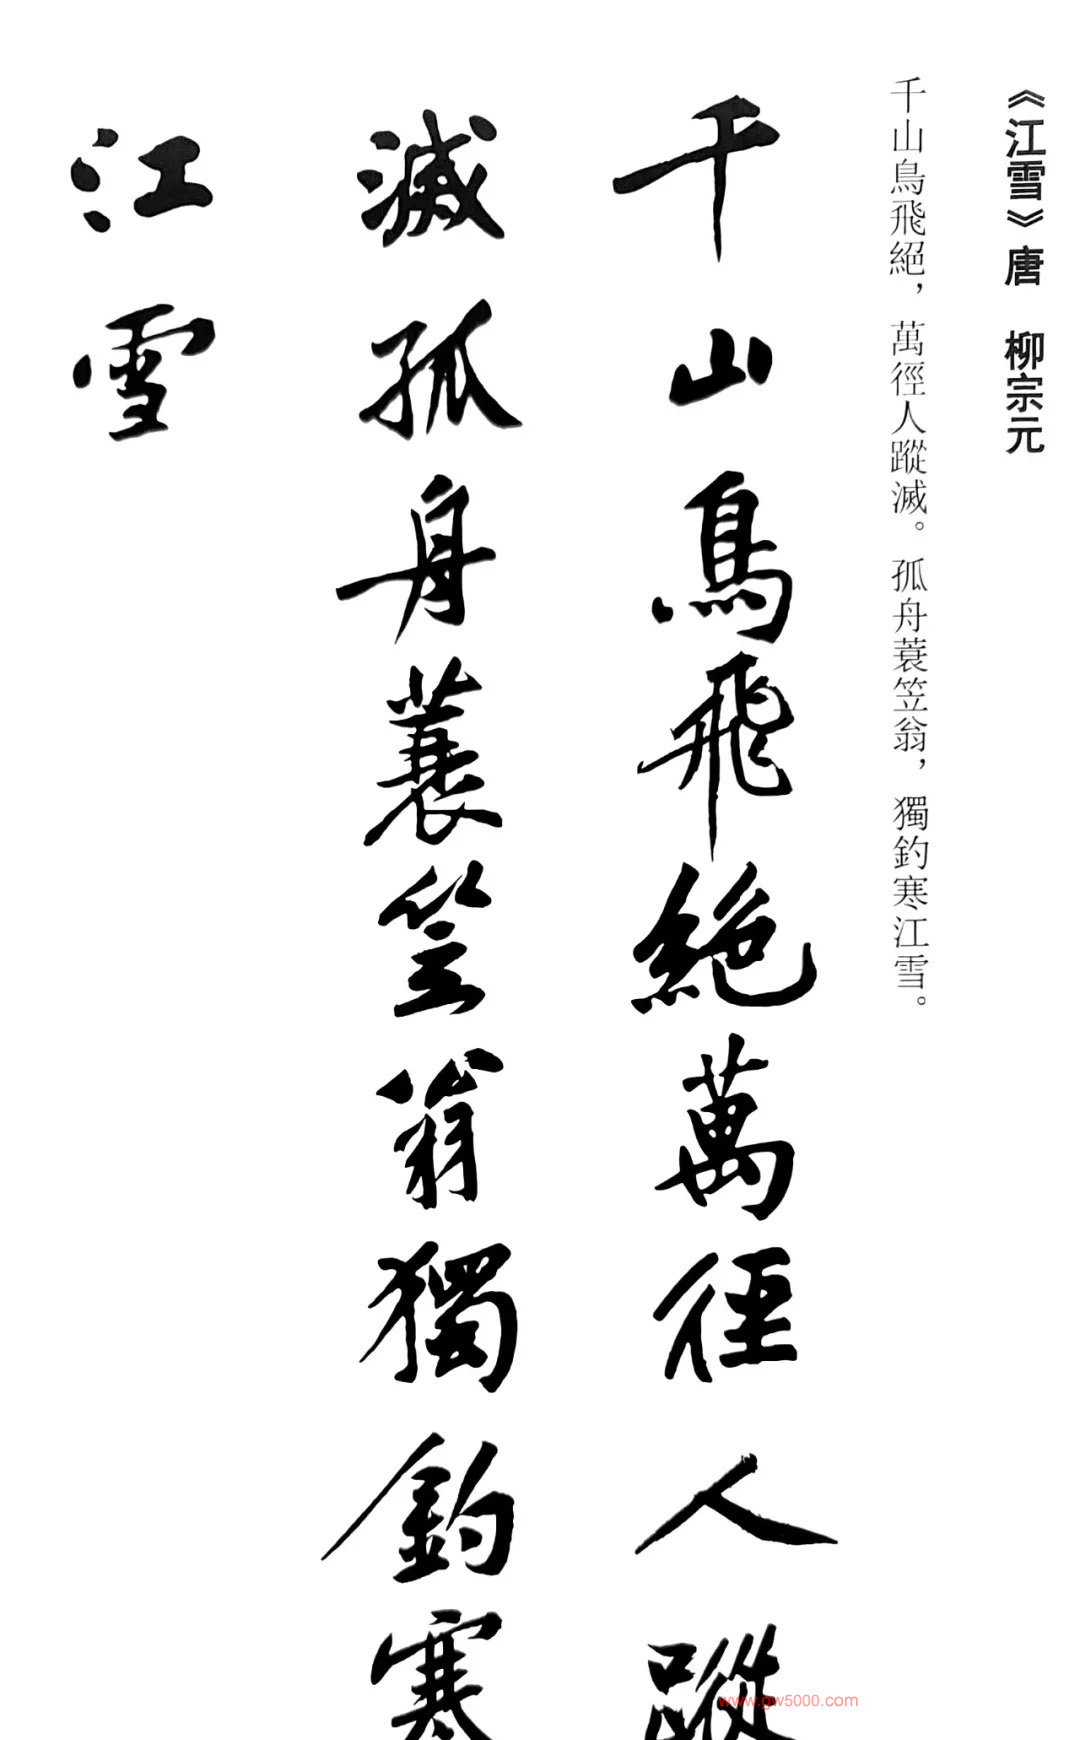 《江雪》唐　柳宗元
千山鳥飛絕，萬徑人蹤滅。孤舟蓑笠翁，獨釣寒江雪。
千山鳥飛絕萬徑人蹤
滅孤舟蓑笠翁獨釣寒
江雪
www.gw5000.com